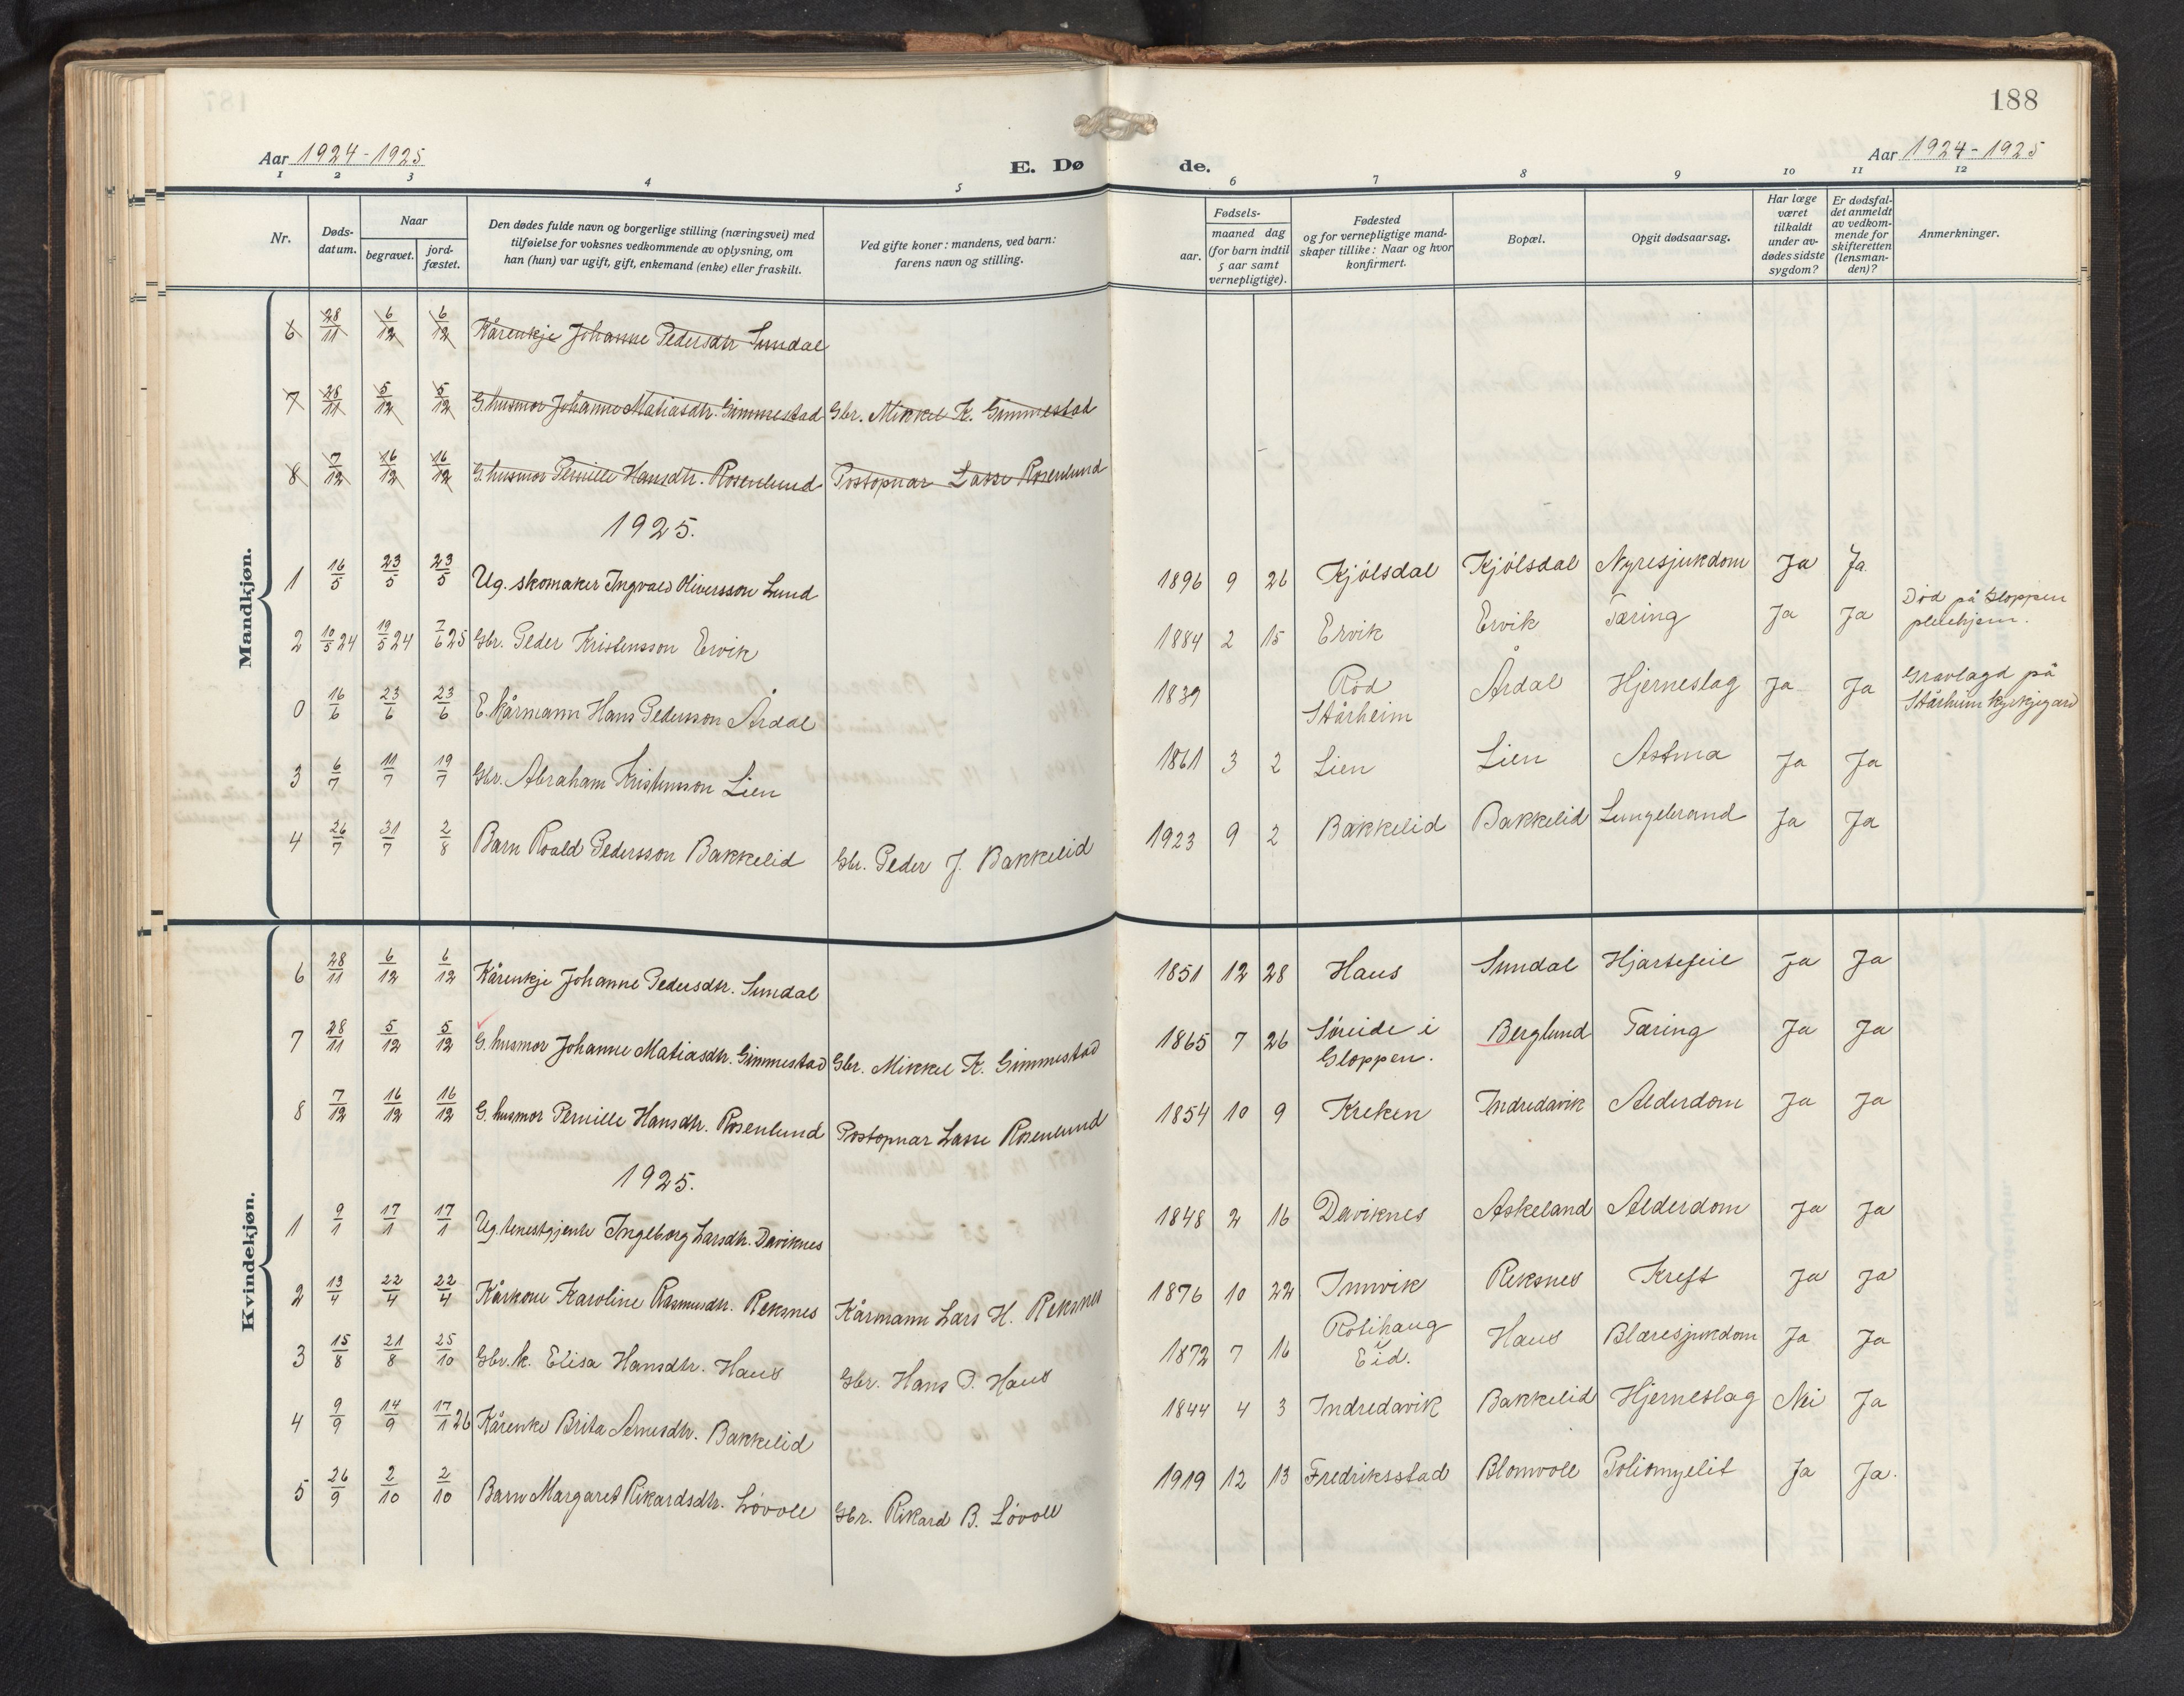 188
Aar 1924-1925
E. Dø
de.
Aar 1924-1925
1 2 3 4 5 6 7 8 9 10 11 12
Nr.
Døds-
datum.
Naar
begravet.
jord-
fæstet.
Den dødes fulde navn og borgerlige stilling (næringsvei) med
tilføielse for voksnes vedkommende av oplysning, om
han (hun) var ugift, gift, enkemand (enke) eller fraskilt.
Ved gifte koner: mandens, ved barn:
farens navn og stilling.
Fødsels-
aar.
maaned dag
(for barn indtil
5 aar samt
vernepligtige).
Fødested
og for vernepligtige mand-
skaper tillike: Naar og hvor
konfirmert.
Bopæl.
Opgit dødsaarsag.
Har læge
været
tilkaldt
under av-
dødes sidste
sygdom?
Er dødsfal-
det anmeldt
av vedkom-
mende for
skifteretten
(lensman-
den)?
Anmerkninger.
Mandkjøn.
6 28/11 6/12 6/12 Kårenkje Johanne Pedersdtr Sundal
7 28/11 5/12 5/12 G. husmor Johanne Matiasdtr. Gimmestad Gbr. Mikkel K. Gimmestad
8 7/12 16/12 16/12 G. husmor Pernille Hansdtr. Rosenlund Postopnar Lasse Rosenlund
1925.
1 16/5 23/5 23/5 Ug. skomaker Ingvald Oliversson Lund 1896 9 26 Kjölsdal Kjölsdal Nyresjukdom Ja Ja
2 10/5 24 19/5 24 7/6 25 Gbr. Peder Kristensson Ervik 1884 2 15 Ervik Ervik Tæring Ja Ja Död på Gloppen
pleiehjem.
0 16/6 23/6 23/6 E. Kårmann Hans Pedersson Årdal 1839 Röd
Stårheim Årdal Hjerneslag Ja Ja Gravlagd på
Stårheim kyrkjegard
3 6/7 11/7 19/7 Gbr. Abraham Kristensson Lien 1861 3 2 Lien Lien Astma Ja Ja
4 26/7 31/7 2/8 Barn Roald Pedersson Bakkelid Gbr. Peder J. Bakkelid 1923 9 2 Bakkelid Bakkelid Lungebrand Ja Ja
Kvindekjøn.
6 28/11 6/12 6/12 Kårenkje Johanne Pedersdtr. Sundal 1851 12 28 Haus Sundal Hjartefeil Ja Ja
7 28/11 5/12 5/12 G. husmor Johanne Matiasdtr. Gimmestad Gbr. Mikkel K. Gimmestad 1865 7 26 Söreide i
Gloppen. Berglund Tæring Ja Ja
8 7/12 16/12 16/12 G. husmor Pernille Hansdtr. Rosenlund Postopnar Lasse Rosenlund 1854 10 9 Kreken Indredavik Alderdom Ja Ja
1925.
1 9/1 17/1 17/1 Ug. tenestgjente Ingeborg Larsdtr. Daviknes 1848 2 16 Daviknes Askeland Alderdom Ja Ja
2 13/4 22/4 22/4 Kårkone Karoline Rasmusdtr. Reksnes Kårmann Lars H. Reksnes 1876 10 22 Innvik Reksnes Kreft Ja Ja
3 15/8 21/8 25/10 Gbr. k. Elisa Hansdtr. Haus Gbr. Hans P. Haus 1872 7 16 Rotihaug
i
Eid. Haus Blæresjukdom Ja Ja
4 9/9 14/9 17/1 26 Kårenke Brita Arnesdtr. Bakkelid 1844 4 3 Indredavik Bakkelid Hjerneslag Nei Ja
5 26/9 2/10 2/10 Barn Margaret Rikardsdtr. Lövoll Gbr. Rikard B. Lövoll 1919 12 13 Fredriksstad Blomvoll Poliomyelit Ja Ja.